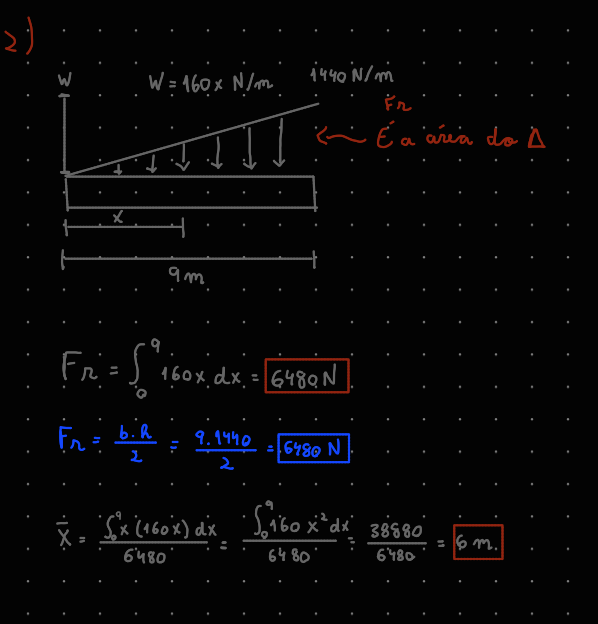 2)
W
W = 160x N/m
1440 N/m
Fr
É a área do Δ
x
9 m
Fr = ∫₀⁹ 160x dx = 6480 N
Fr = b.h/2 = 9.1440/2 = 6480 N
x̄ = ∫₀⁹ x (160x) dx / 6480 = ∫₀⁹ 160 x² dx / 6480 = 38880/6480 = 6 m.